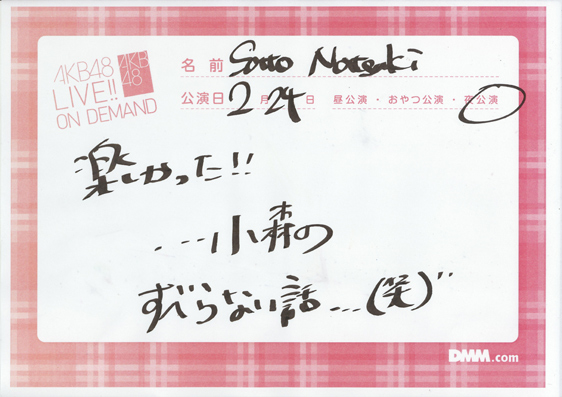 AKB48
LIVE!!
ON DEMAND
AKB
48
名前 Sato Natsuki
公演日 2月24日 昼公演・おやつ公演・夜公演
楽しかった!!
...小森の
ずべらない話...(笑)"
DMM.com